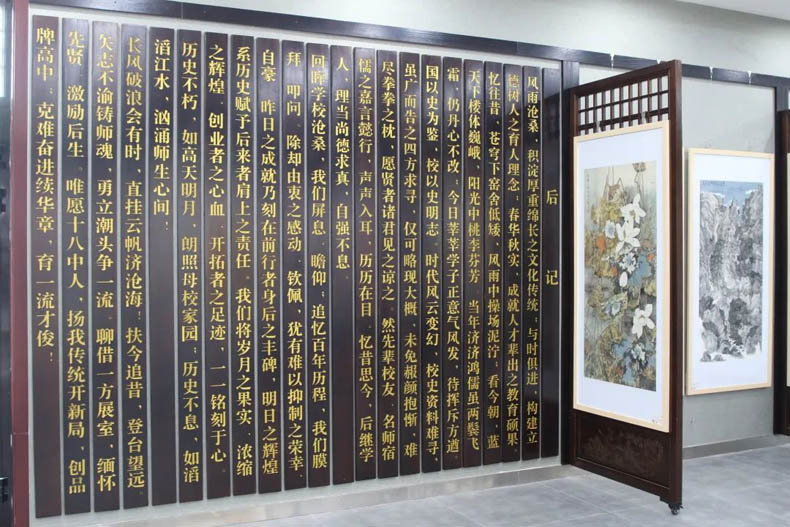 后记
风雨沧桑，积淀厚重绵长之文化传统；与时俱进，构建立
德树人之育人理念；春华秋实，成就人才辈出之教育硕果。
忆往昔，苍穹下窑舍低矮，风雨中操场泥泞；看今朝，蓝
天下楼体巍峨，阳光中桃李芬芳。当年济济鸿儒虽两鬓飞
霜，仍丹心不改；今日莘莘学子正意气风发，待挥斥方遒。
国以史为鉴，校以史明志。时代风云变幻，校史资料难寻，
虽广而告之四方求寻，仅可略现大概，未免赧颜抱惭，难
尽拳拳之忱，愿贤者诸君见之谅之。然先辈校友，名师宿
儒之嘉言懿行，声声入耳，历历在目。忆昔思今，后继学
人，理当尚德求真，自强不息。
回眸学校沧桑，我们屏息，瞻仰；追忆百年历程，我们膜
拜，叩问。除却由衷之感动、钦佩，犹有难以抑制之荣幸、
自豪。昨日之成就乃刻在前行者身后之丰碑，明日之辉煌
系历史赋予后来者肩上之责任。我们将岁月之果实，浓缩
之辉煌，创业者之心血，开拓者之足迹，一一铭刻于心。
历史不朽，如高天明月，朗照母校家园；历史不息，如滔
滔江水，汹涌师生心间！
长风破浪会有时，直挂云帆济沧海！扶今追昔，登台望远。
矢志不渝铸师魂，勇立潮头争一流。聊借一方展室，缅怀
先贤，激励后生。唯愿十八中人，扬我传统开新局，创品
牌高中；克难奋进续华章，育一流才俊！